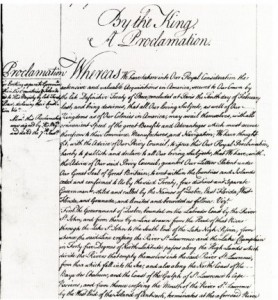 By the King
A Proclamation.
Proclamation
Whereas We have taken into Our Royal Consideration the
extensive and valuable Acquisitions in America, secured to Our Crown by
the late Definitive Treaty of Peace, concluded at Paris the tenth day of February
last, and being desirous, that all Our loving Subjects, as well of Our
Kingdoms as of Our Colonies in America, may avail themselves, with all
convenient Speed, of the great Benefits and Advantages which must accrue
therefrom to their Commerce, Manufactures, and Navigation; We have thought
fit, with the Advice of Our Privy Council, to issue this Our Royal Proclamation,
hereby to publish and declare to all Our loving Subjects, that We have, with
the Advice of Our said Privy Council, granted Our Letters Patent under
Our Great Seal of Great Britain, to erect within the Countries and Islands
ceded and confirmed to Us by the said Treaty, four distinct and separate
Governments, stiled and called by the Names of Quebec, East Florida, West
Florida, and Grenada, and limited and bounded as follows, Viz.
First The Government of Quebec, bounded on the Labrador Coast by the River
St. John, and from thence by a Line drawn from the Head of that River
through the Lake St. John to the South End of the Lake
from
whence the said Line crossing the River St. Lawrence and the Lake Champlain
in Forty five Degrees of North Latitude, passes along the High Lands which
divide the Rivers that empty themselves into the said River St. Lawrence,
from those which fall into the Sea; and also along the North Coast of the
Bay des Chaleurs, and the Coast of the Gulph of St. Lawrence to Cape
Rosieres, and from thence crossing the Mouth of the River St. Lawrence
by the West End of the Island of Anticosti, terminates at the aforesaid River